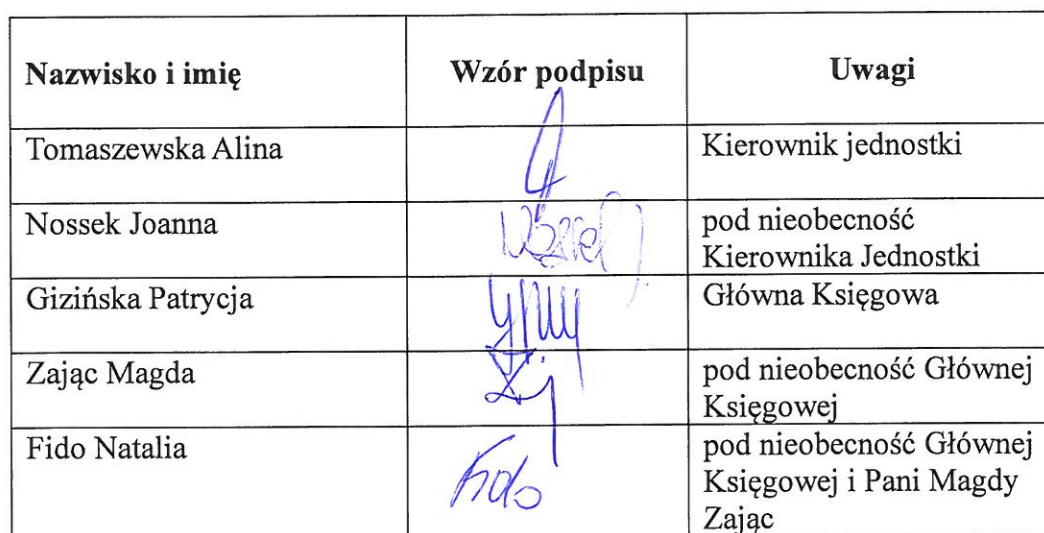 Nazwisko i imię Wzór podpisu Uwagi
Tomaszewska Alina Kierownik jednostki
Nossek Joanna pod nieobecność
Kierownika Jednostki
Gizińska Patrycja Główna Księgowa
Zając Magda pod nieobecność Głównej
Księgowej
Fido Natalia Fido pod nieobecność Głównej
Księgowej i Pani Magdy
Zając